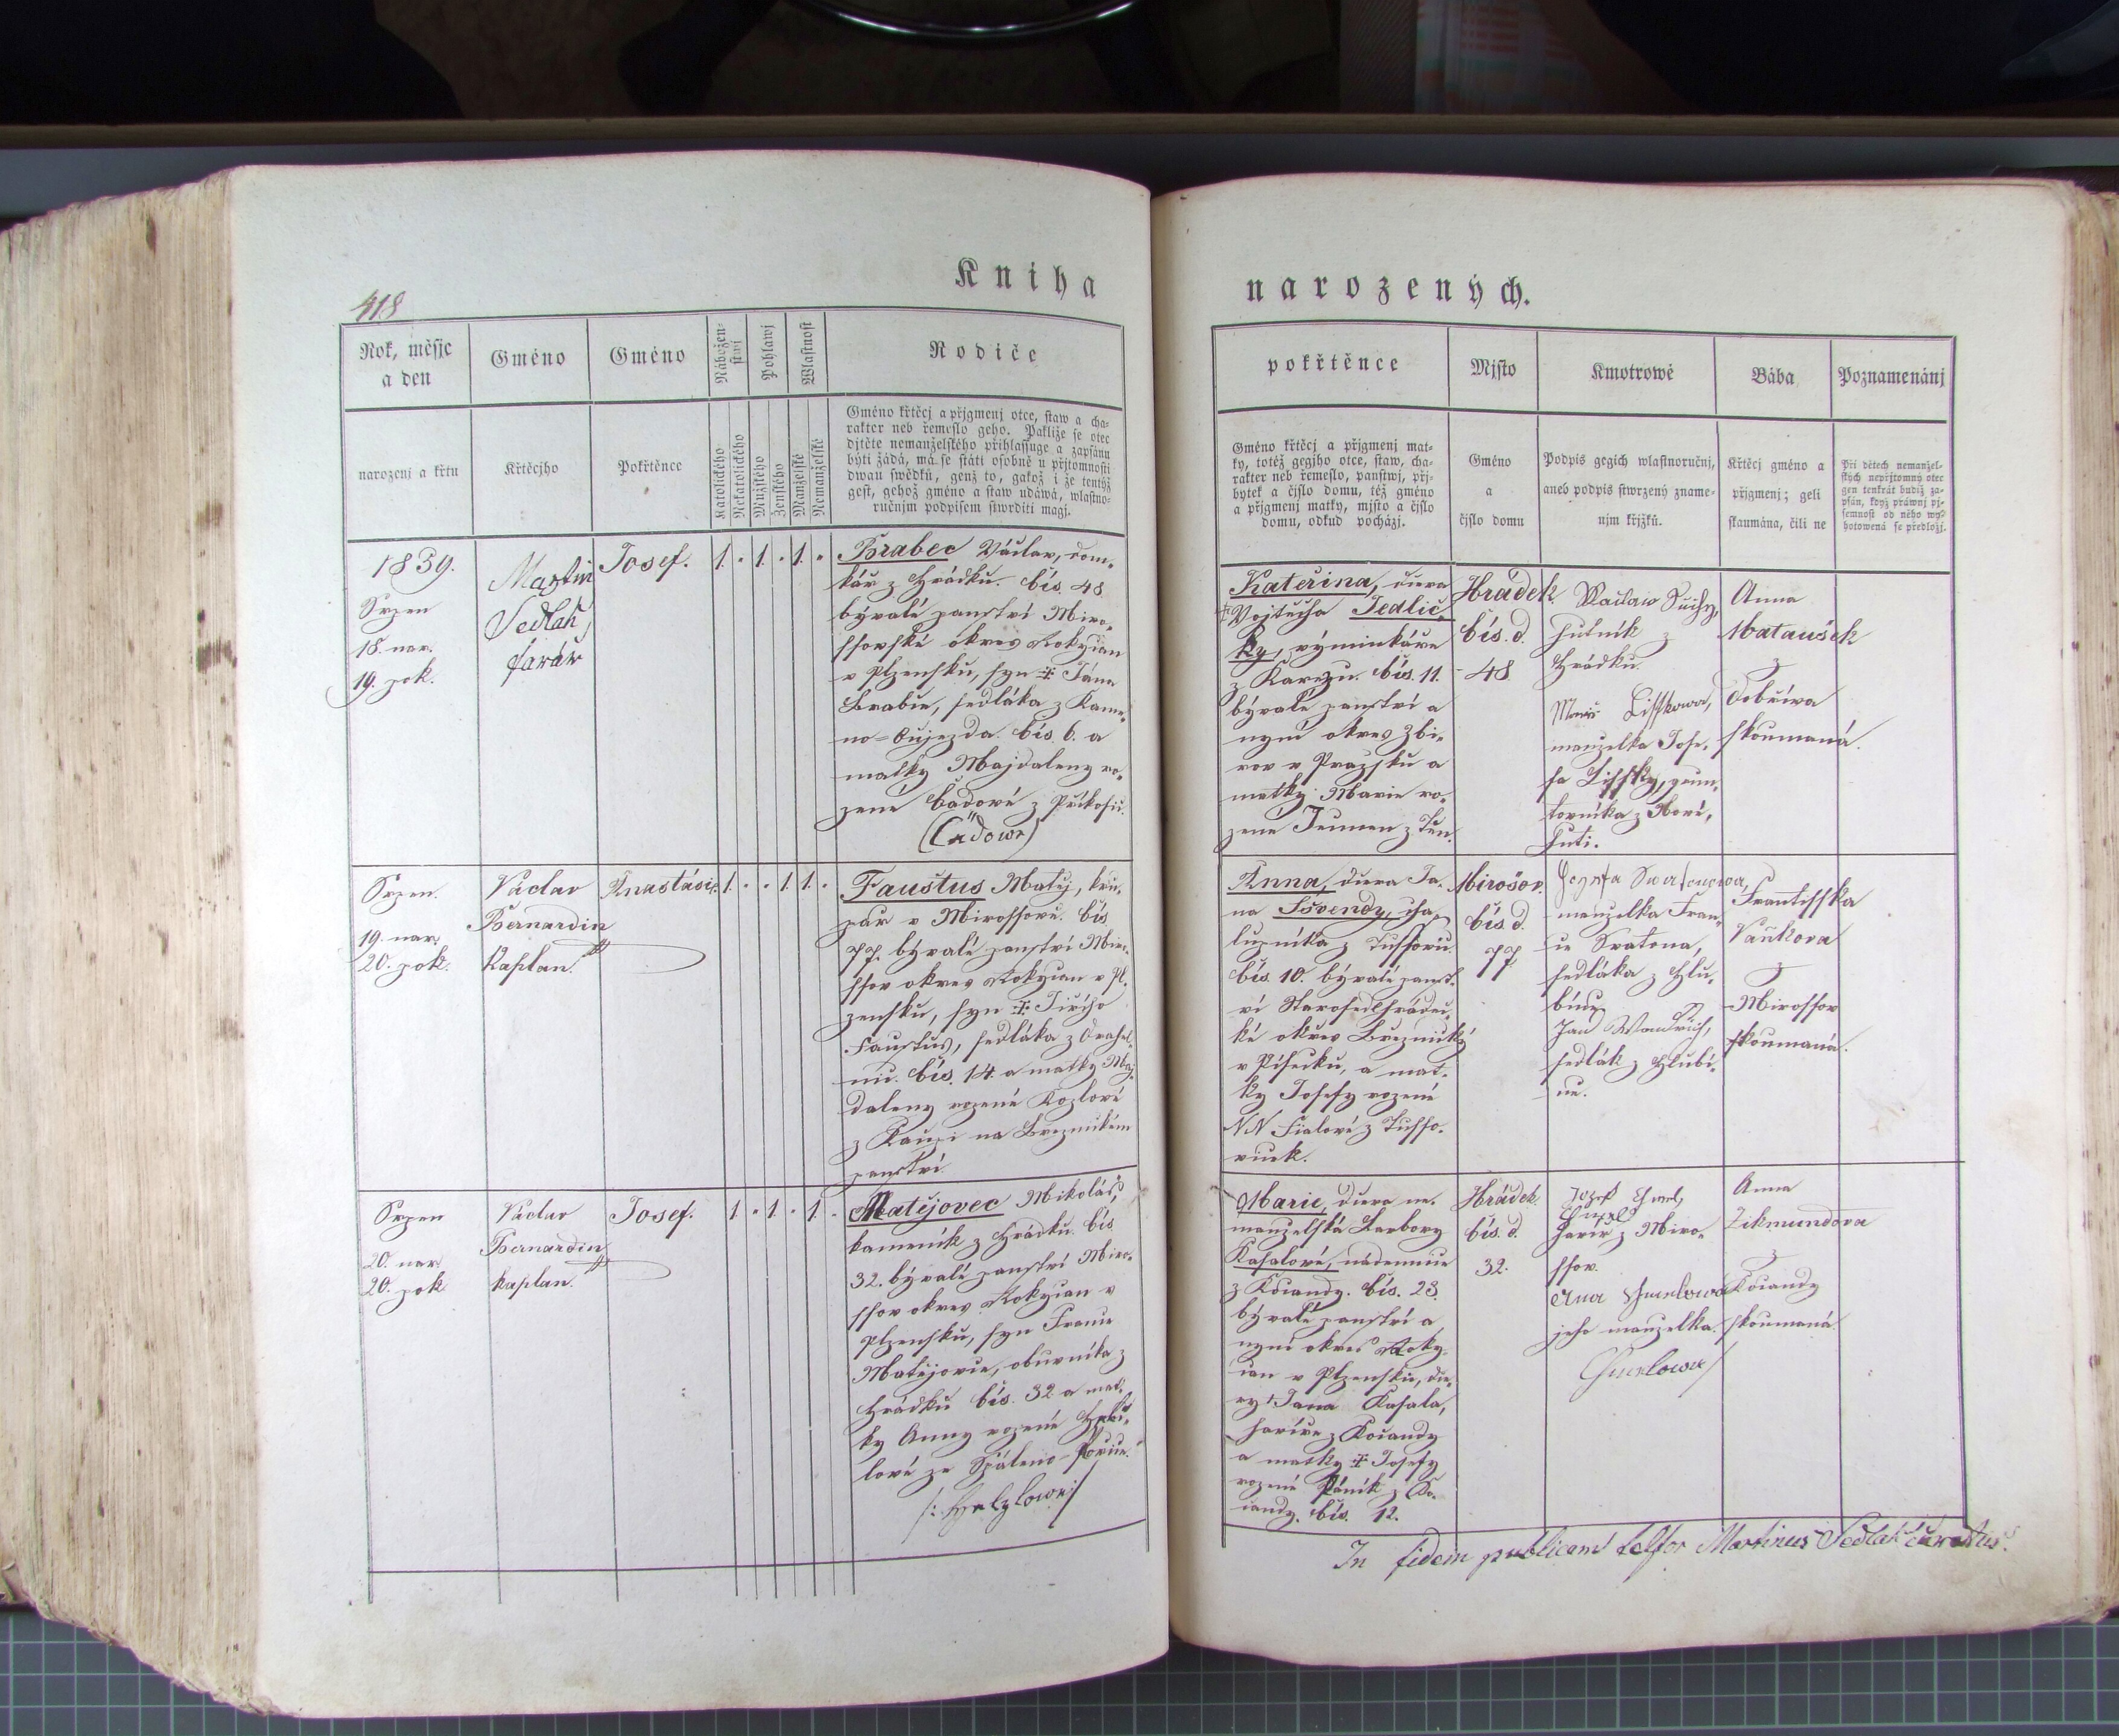 Kniha
418
Rok, měsýc
a den
Gméno
Gméno
Nábožen-
stwj
Pohlawj
Wlastnost
Rodiče
narozenj a křtu
Křtěcýho
Pokřtěnce
Katolického
Nekatolického
Mužského
Ženského
Manželské
Nemanželské
Gméno křtěcj a přjgmenj otce, staw a cha-
rakter neb řemeslo geho. Pakliže se otec
djtěte nemanželského přihlassuge a zapsánu
býti žádá, má se státi osobně u přjtomnosti
dwau swědků, genž to, gakož i že tentýž
gest, gehož gméno a staw udáwá, wlastno-
ručnjm podpisem stwrditi magj.
1839.
Srpen
18. nar.
19. pok.
Martin
Sedlak,
farář
Josef.
1. . 1. . 1. .
Brabec Václav, dom-
kář z Hrádku. čís. 48
bývalé panství Miro-
ssovské okres Rokycan
v Plzensku, syn ‡ Jána
Brabce, sedláka z Kame-
no-Oujezda. čís. 6. a
matky Majdaleny ro-
zené Čadové z Příkosic.
(Cädowe)
Srpen.
19. nar.
20. pok.
Václav
Bernardin
Kaplan.
Anastásie.
1. . . 1. 1. .
Faustus Matěj, kru-
pař v Mirossově. čís
77. bývalé panství Miro-
ssov okres Rokycan v Pl-
zensku, syn ‡ Jiřího
Faustus, sedláka z Drahel-
nic. čís. 14. a matky Maj-
daleny rozené Kozlové
z Kauzi na Breznickém
panství
Srpen
20. nar.
20. pok
Václav
Bernardin
kaplan.
Josef.
1. . 1. . 1. .
Matějovec Mikoláš,
kameník z Hrádku. čís
32. bývalé panství Miro-
ssov okres Rokycan v
Plzensku, syn France
Matějovce, obuvníka z
Hrádku čís. 32. a mat-
ky Anny rozené
lové ze Spáleno-Poříce.
narozených.
pokřtěnce
Mjsto
Kmotrowé
Bába
Poznamenánj
Gméno křtěcj a přjgmenj mat-
ky, totéž gegjho otce, staw, cha-
rakter neb řemeslo, panstwj, přj-
bytek a čjslo domu, též gméno
a přjgmenj matky, mjsto a čjslo
domu, odkud pocházj.
Gméno
a
čjslo domu
Podpis gegich wlastnoručnj,
aneb podpis stwrzený zname-
njm křjžků.
Křtěcj gméno a
přjgmenj; geli
skaumána, čili ne
Při dětech nemanžel-
ských nepřjtomný otec
gen tenkrát budiž za-
psán, když práwnj pj-
semnost od něho wy-
hotowená se předložj.
Kateřina, dcera
‡ Vojtěcha Jedlič-
ky, výminkáře
z Karezu. čís. 11.
bývalé panství a
nyní okres Zbi-
rov v Prazsku a
matky Marie ro-
zené
Hrádek
čís. d.
48
Waclaw Suchy,
hutník z
Hrádku.
Lisskowa,
manzelka Jose-
fa Lissky, grun-
tovníka z Nové
Huti.
Anna
Mataušek
z
Dobříva
skoumaná.
Anna, dcera Ja-
na Švendy, cha-
lupníka z
čís. 10. bývalé panst-
ví Starosedlhrádec-
ké okres Breznický
v Písecku, a mat-
ky Josefy rozené
NN Fialové z Tusso-
vicek.
Mirošov.
čís. d.
77
manzelka Fran-
ce Svatona,
sedláka z Hlu-
bíne
Jan
sedlák z Hlubí-
ne.
Frantisska
Vaňkova
z
Mirossov
skoumaná.
Marie, dcera ne-
manzelská Barbory
Kasalové, nádennice
z Kocandy. čís. 23.
bývalé panství a
nyní okres Roky-
can v Plzensku, dce-
ry Jana Kasala,
z Kocandy
a matky ‡ Josefy
rozené Páník z Ko-
candy. čís. 12.
Hrádek
čís. d.
32.
Jozef
z Miro-
ssov.
jeho manzelka.
Anna
Zikmundova
z
Kocandy
skoumaná
In fidem publicam testor Martinus Sedlak curatus.